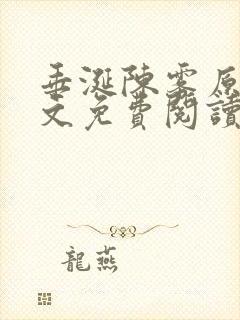 垂涎陳雾原
文免費閱讀
龍燕